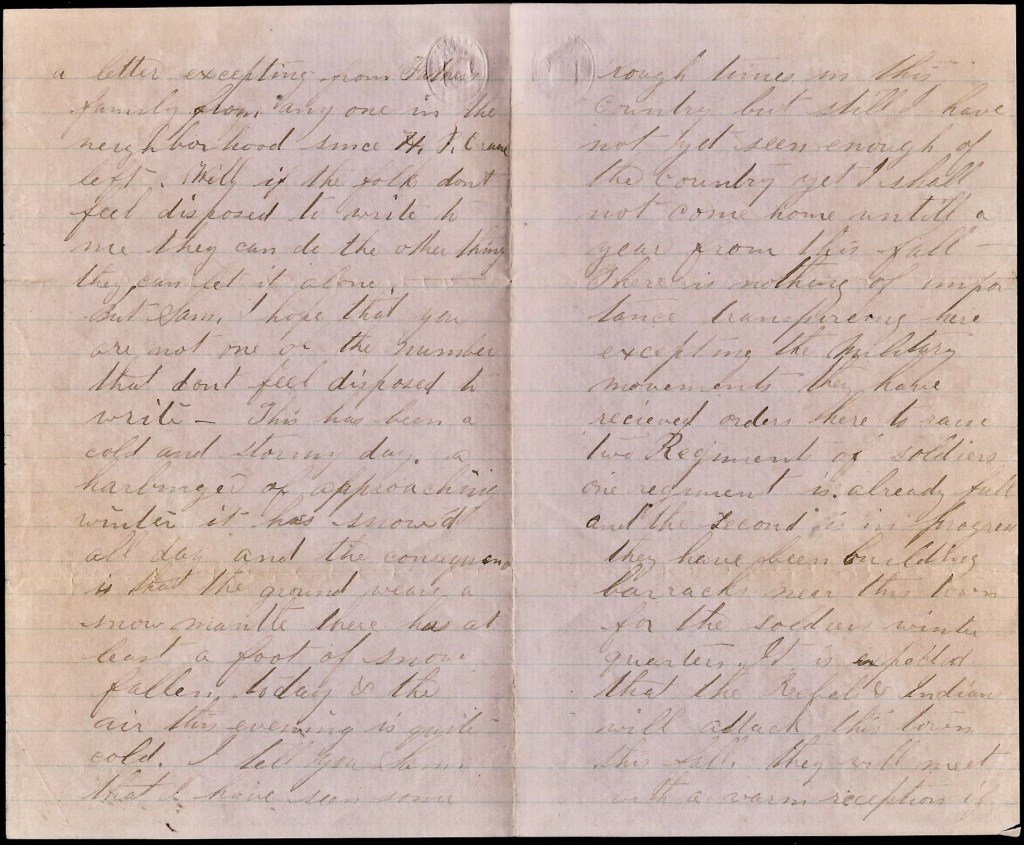 a letter excepting from Fathers
family from any one in the
neighborhood since H. P. Crane
left. Well if the folk dont
feel disposed to write to
me they can do the other thing
they can let it alone.
But Sam, I hope that you
are not one on the number
that dont feel disposed to
write — This has been a
cold and stormy day. a
harbinger of approaching
winter it has snowd
all day and the consequence
is that the ground wears a
snow mantle there has at
least a foot of snow
fallen, today & the
air this evening is quite
cold. I tell you Sam
that I have seen some
rough times in this
Country but still I have
not yet seen enough of
the Country yet I shall
not come home untill a
year from this fall —
There is nothing of impor
tance transpireing here
excepting the Military
movements they have
recieved orders there to raise
two Regiment of soldiers
one regiment is already full
and the second is in progress
they have been building
barracks near this town
for the soldiers winter
quarters. It is expected
that the Rebels & Indians
will attack this town
this fall. they will meet
with a warm reception if